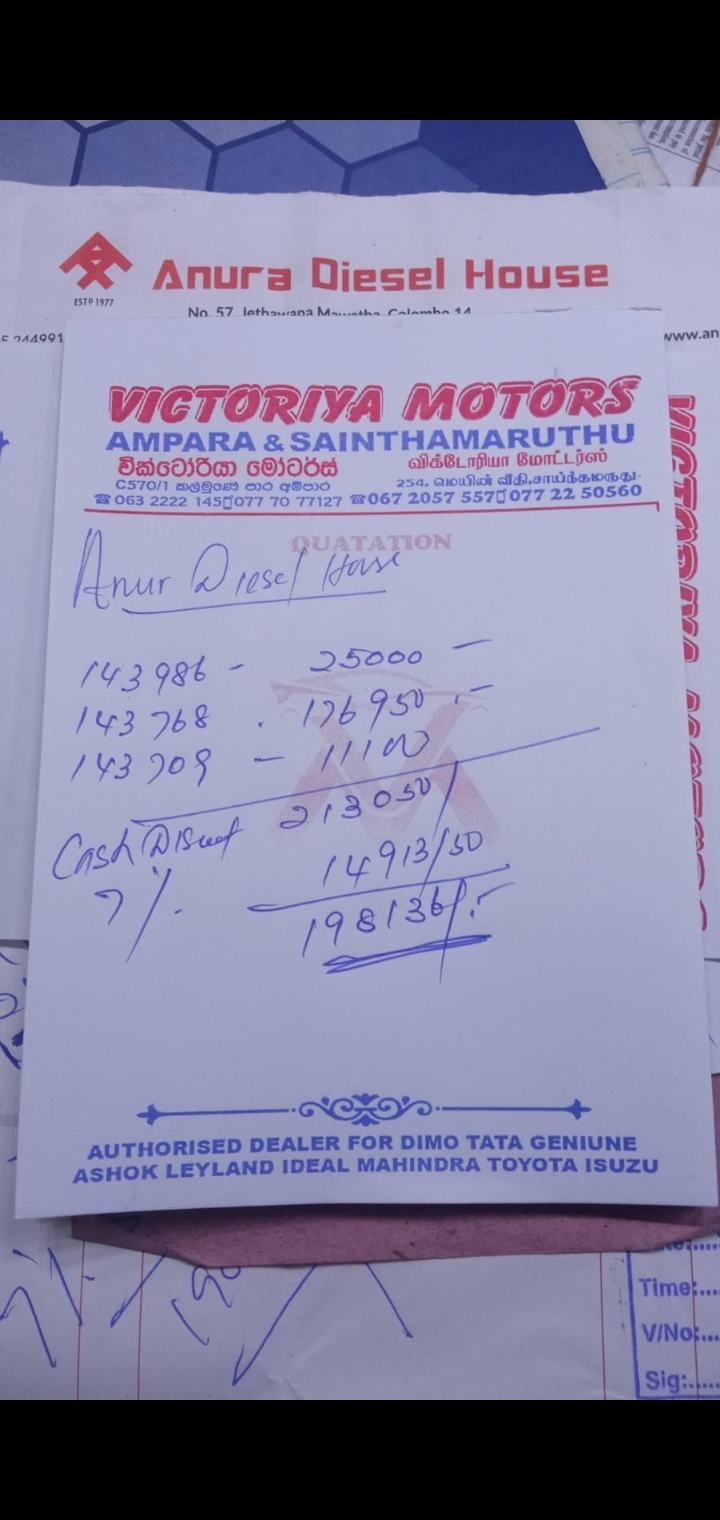 Anura Diesel House
ESTD 1977
No. 57, Jethawana Mawatha, Colombo 14
244991
www.an
VICTORIYA MOTORS
AMPARA & SAINTHAMARUTHU
වික්ටෝරියා මෝටර්ස්
விக்டோரியா மோட்டர்ஸ்
C570/1 කල්මුණේ පාර අම්පාර
254, மெயின் வீதி,சாய்ந்தமருது-
☎ 063 2222 145▯077 70 77127 ☎067 2057 557▯077 22 50560
QUATATION
Anur Diesel House
143986 - 25000 —
143768 . 176950 .—
143709 — 11100
213050/
Cash Discut
7%. 14913/50
198136/.-
AUTHORISED DEALER FOR DIMO TATA GENIUNE
ASHOK LEYLAND IDEAL MAHINDRA TOYOTA ISUZU
Time:....
V/No:...
Sig:.....